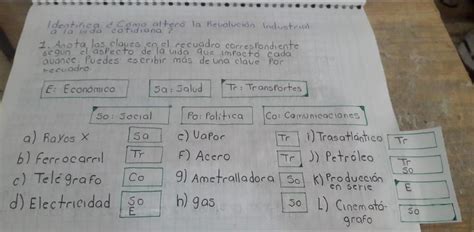 Identifica ¿Cómo alteró la Revolución Industrial
a la vida cotidiana?
1. Anota las claves en el recuadro correspondiente
según el aspecto de la vida que impactó cada
avance. Puedes escribir más de una clave por
recuadro
E: Económico Sa: Salud Tr: Transportes
So: Social Po: Política Co: Comunicaciones
a) Rayos X Sa e) Vapor Tr I) Trasatlántico Tr
b) Ferrocarril Tr F) Acero Tr J) Petróleo Tr So
c) Telégrafo Co g) Ametralladora So K) Producción en serie E
d) Electricidad So E h) gas So L) Cinematógrafo So